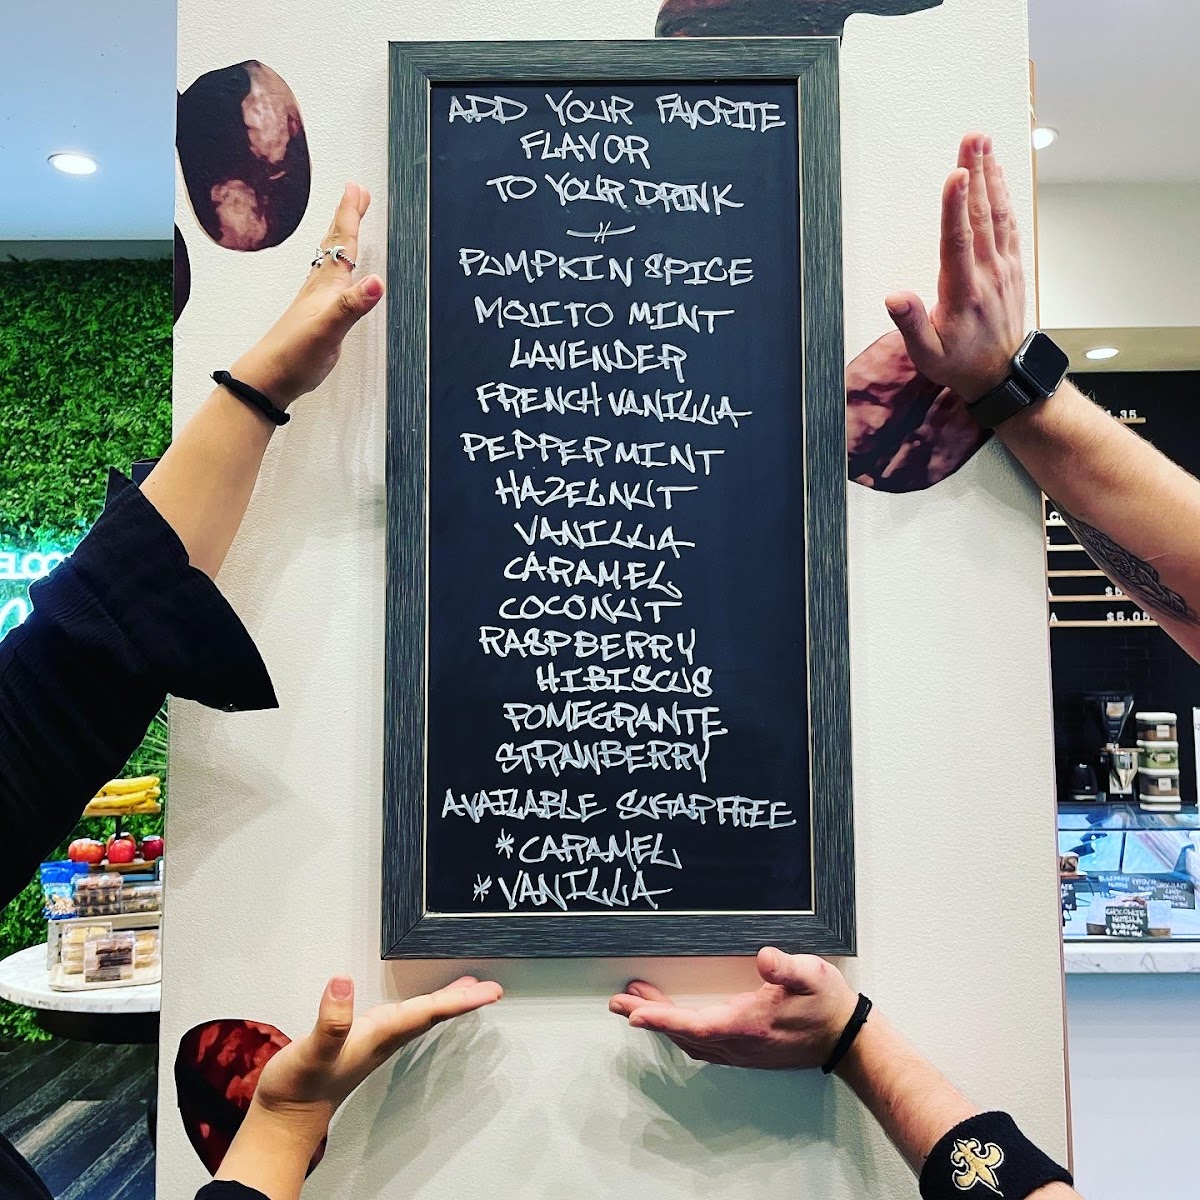 ADD YOUR FAVORITE
FLAVOR
TO YOUR DRINK
PUMPKIN SPICE
MOJITO MINT
LAVENDER
FRENCH VANILLA
PEPPERMINT
HAZELNUT
VANILLA
CARAMEL
COCONUT
RASPBERRY
HIBISCUS
POMEGRANTE
STRAWBERRY
AVAILABLE SUGAR FREE
* CARAMEL
* VANILLA
$5.05
CHOCOLATE
NUTELLA
BABKA